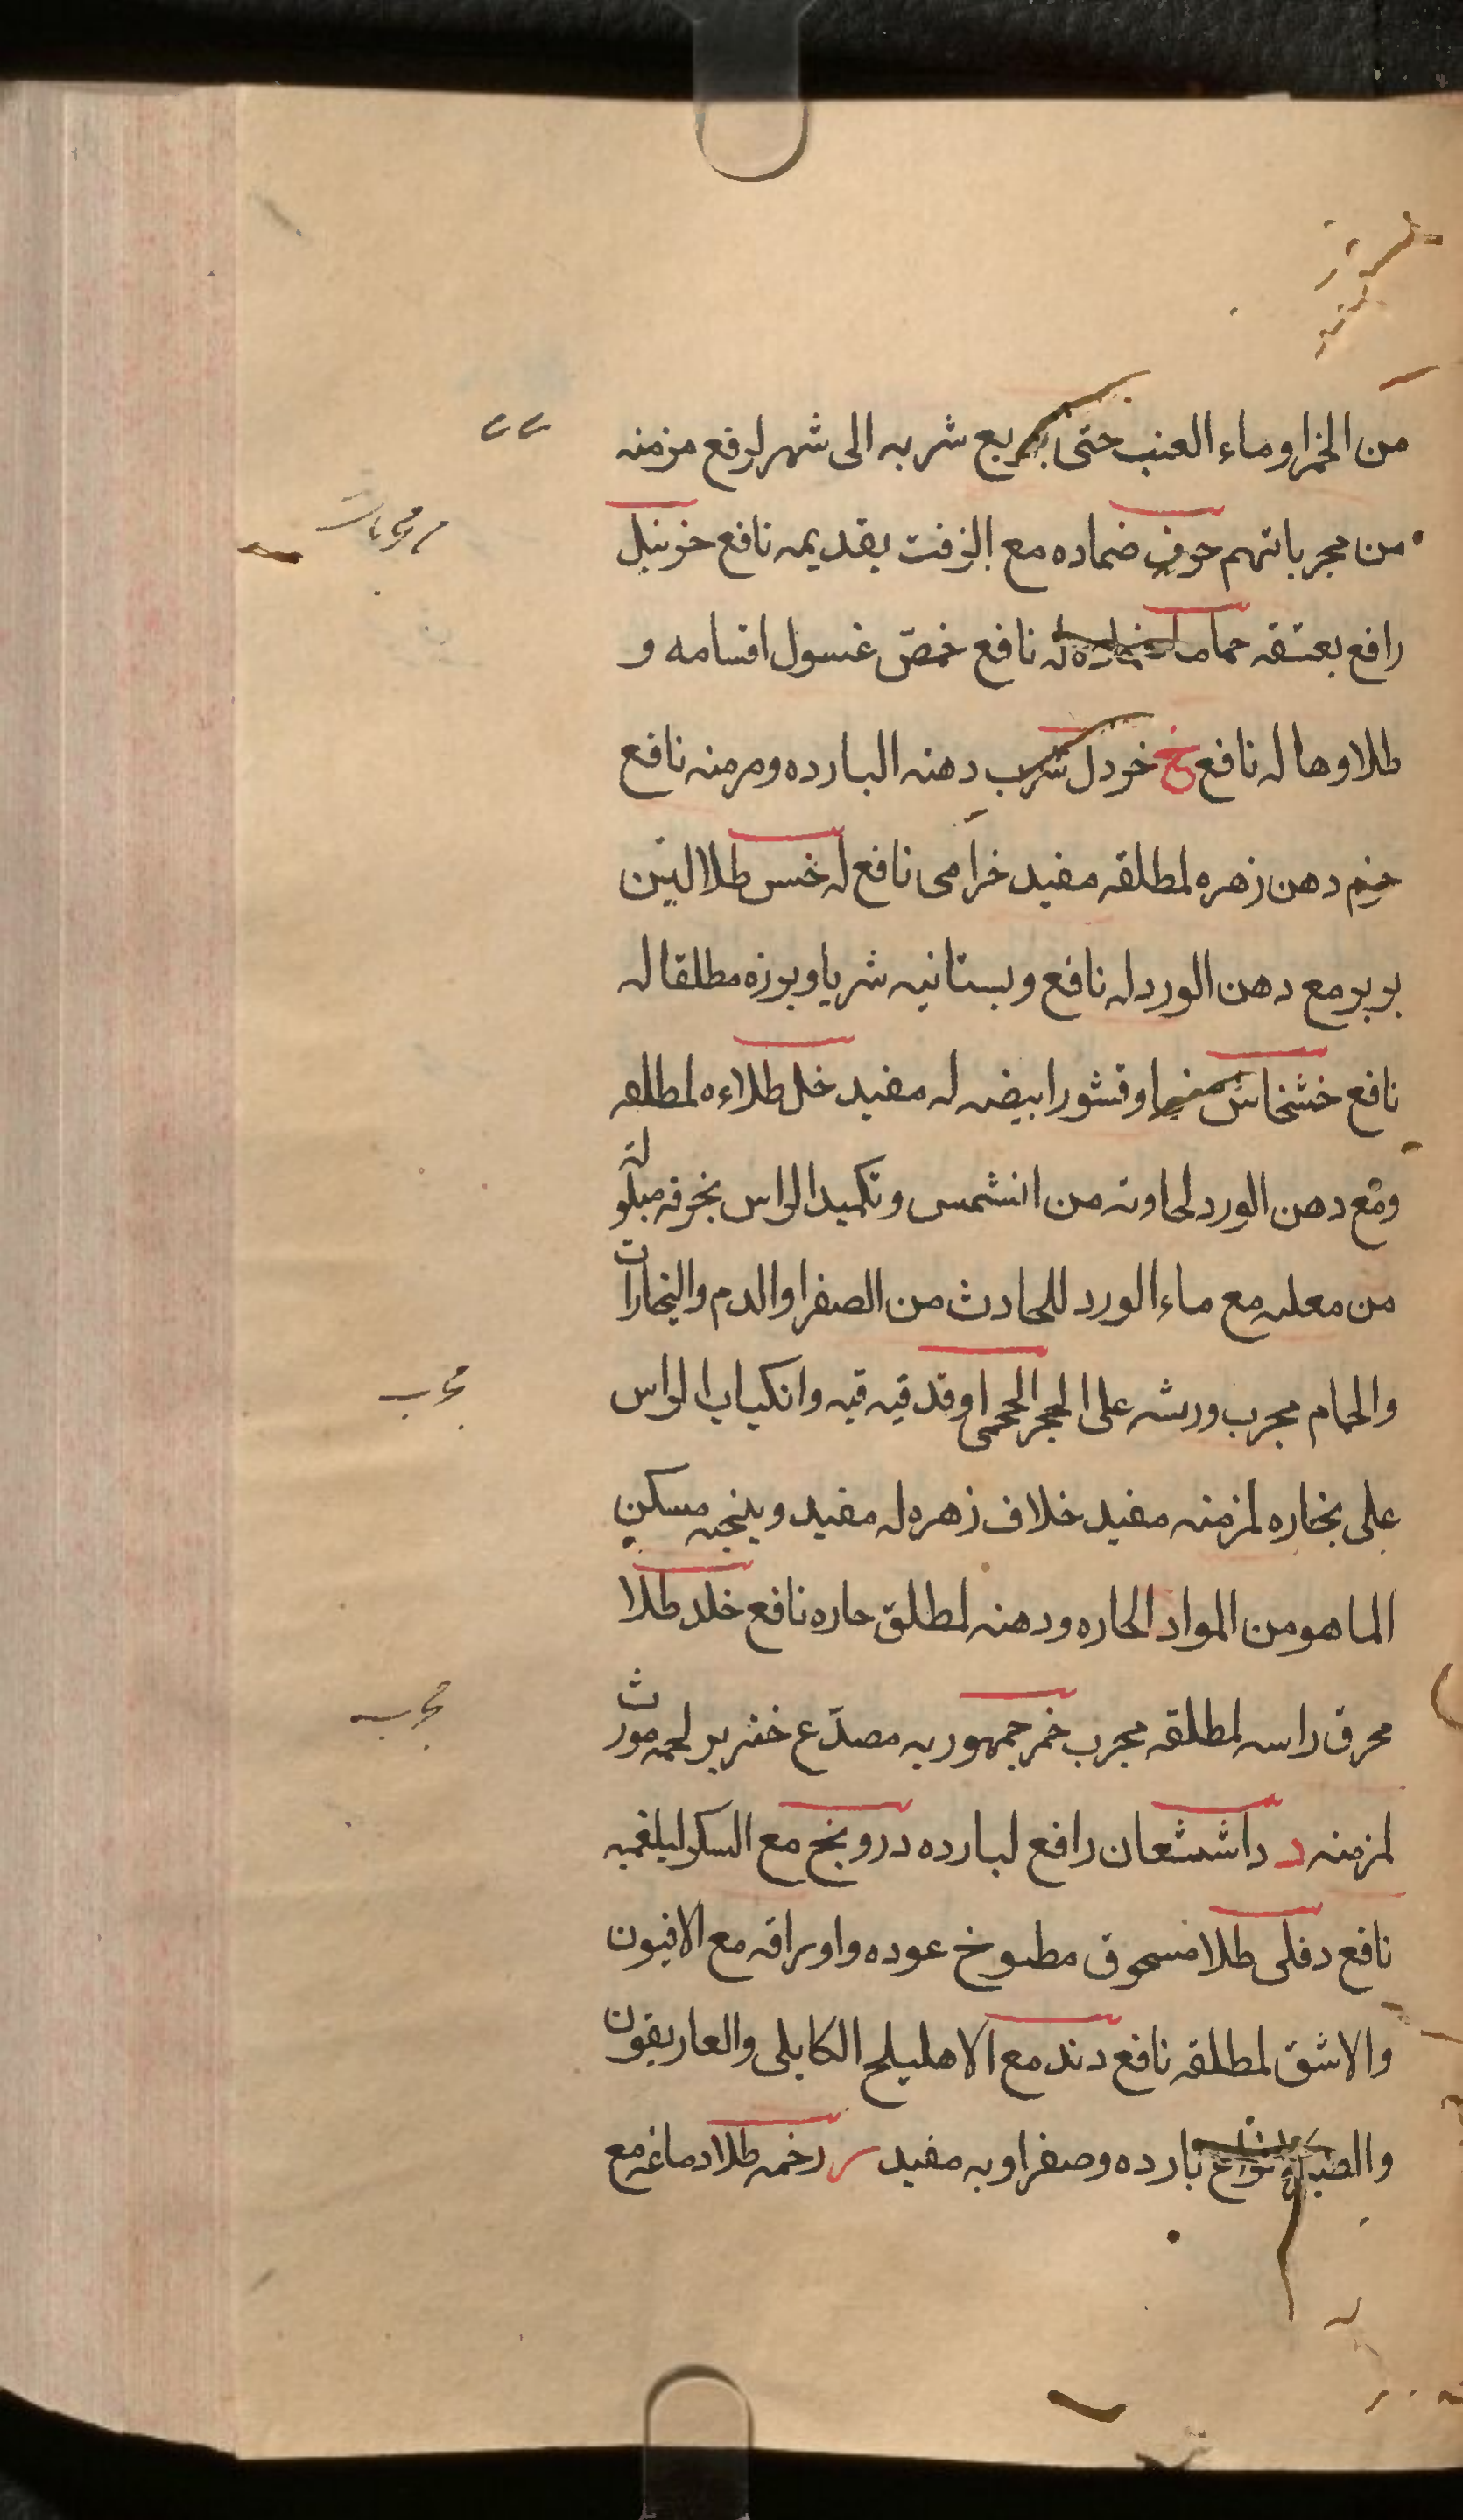 من الخمر او ماء العنب حتى يربع شربه الى شهر لرفع مزمنه
من مجرباتهم حرف ضماده مع الزفت بقديمه نافع خرنبل
رافع بعتقه حماما له نافع خمص غسول اقسامه و
طلا وها له نافع خ خردل شرب دهنه البارده ومزمنه نافع
خيم دهن زهره لمطلقه مفيد خزامى نافع له خس طلا لبن
بربر مع دهن الورد له نافع وبستانيه شربا وبوزه مطلقا له
نافع خشخاش منهما وقشور ابيضه له مفيد خل طلاءه لمطلقه
ومع دهن الورد لحاوته من الشمس وتكميد الراس بخرقه مبلولة
من معليه مع ماء الورد للحادث من الصفرا والدم والبخارات
والحمام مجرب ورشه على الحجر المحمى او قدقيه فيه وانكباب الراس
على بخاره لمزمنه مفيد خلاف زهره له مفيد وبنجه مسكن
الما هو من المواد الحاره ودهنه لمطلق حاره نافع خلد طلا
محرق راسه لمطلقه مجرب خمر جمهوريه مصدّع خنزير لحمه مورث
لمزمنه د داشيشعان رافع لبارده درونج مع السكر لبلغميه
نافع دفلى طلا مسحوق مطبوخ عوده واوراقه مع الافيون
والاشق لمطلقه نافع دند مع الاهليلج الكابلى والغاريقون
والصبر بارده وصفراويه مفيد ر رخمه طلا دماغه مع
مجرب
مجرب